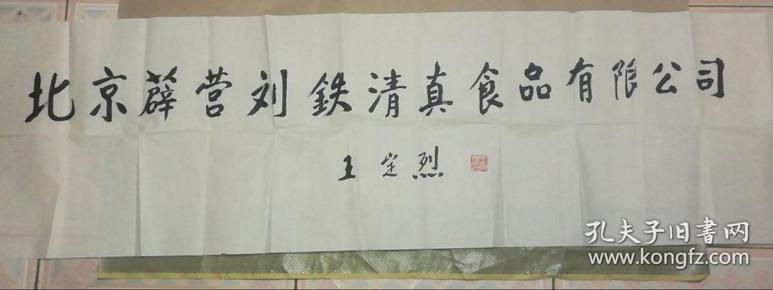 北京薜营刘鉄清真食品有限公司
王定烈
孔夫子旧书网
www.kongfz.com